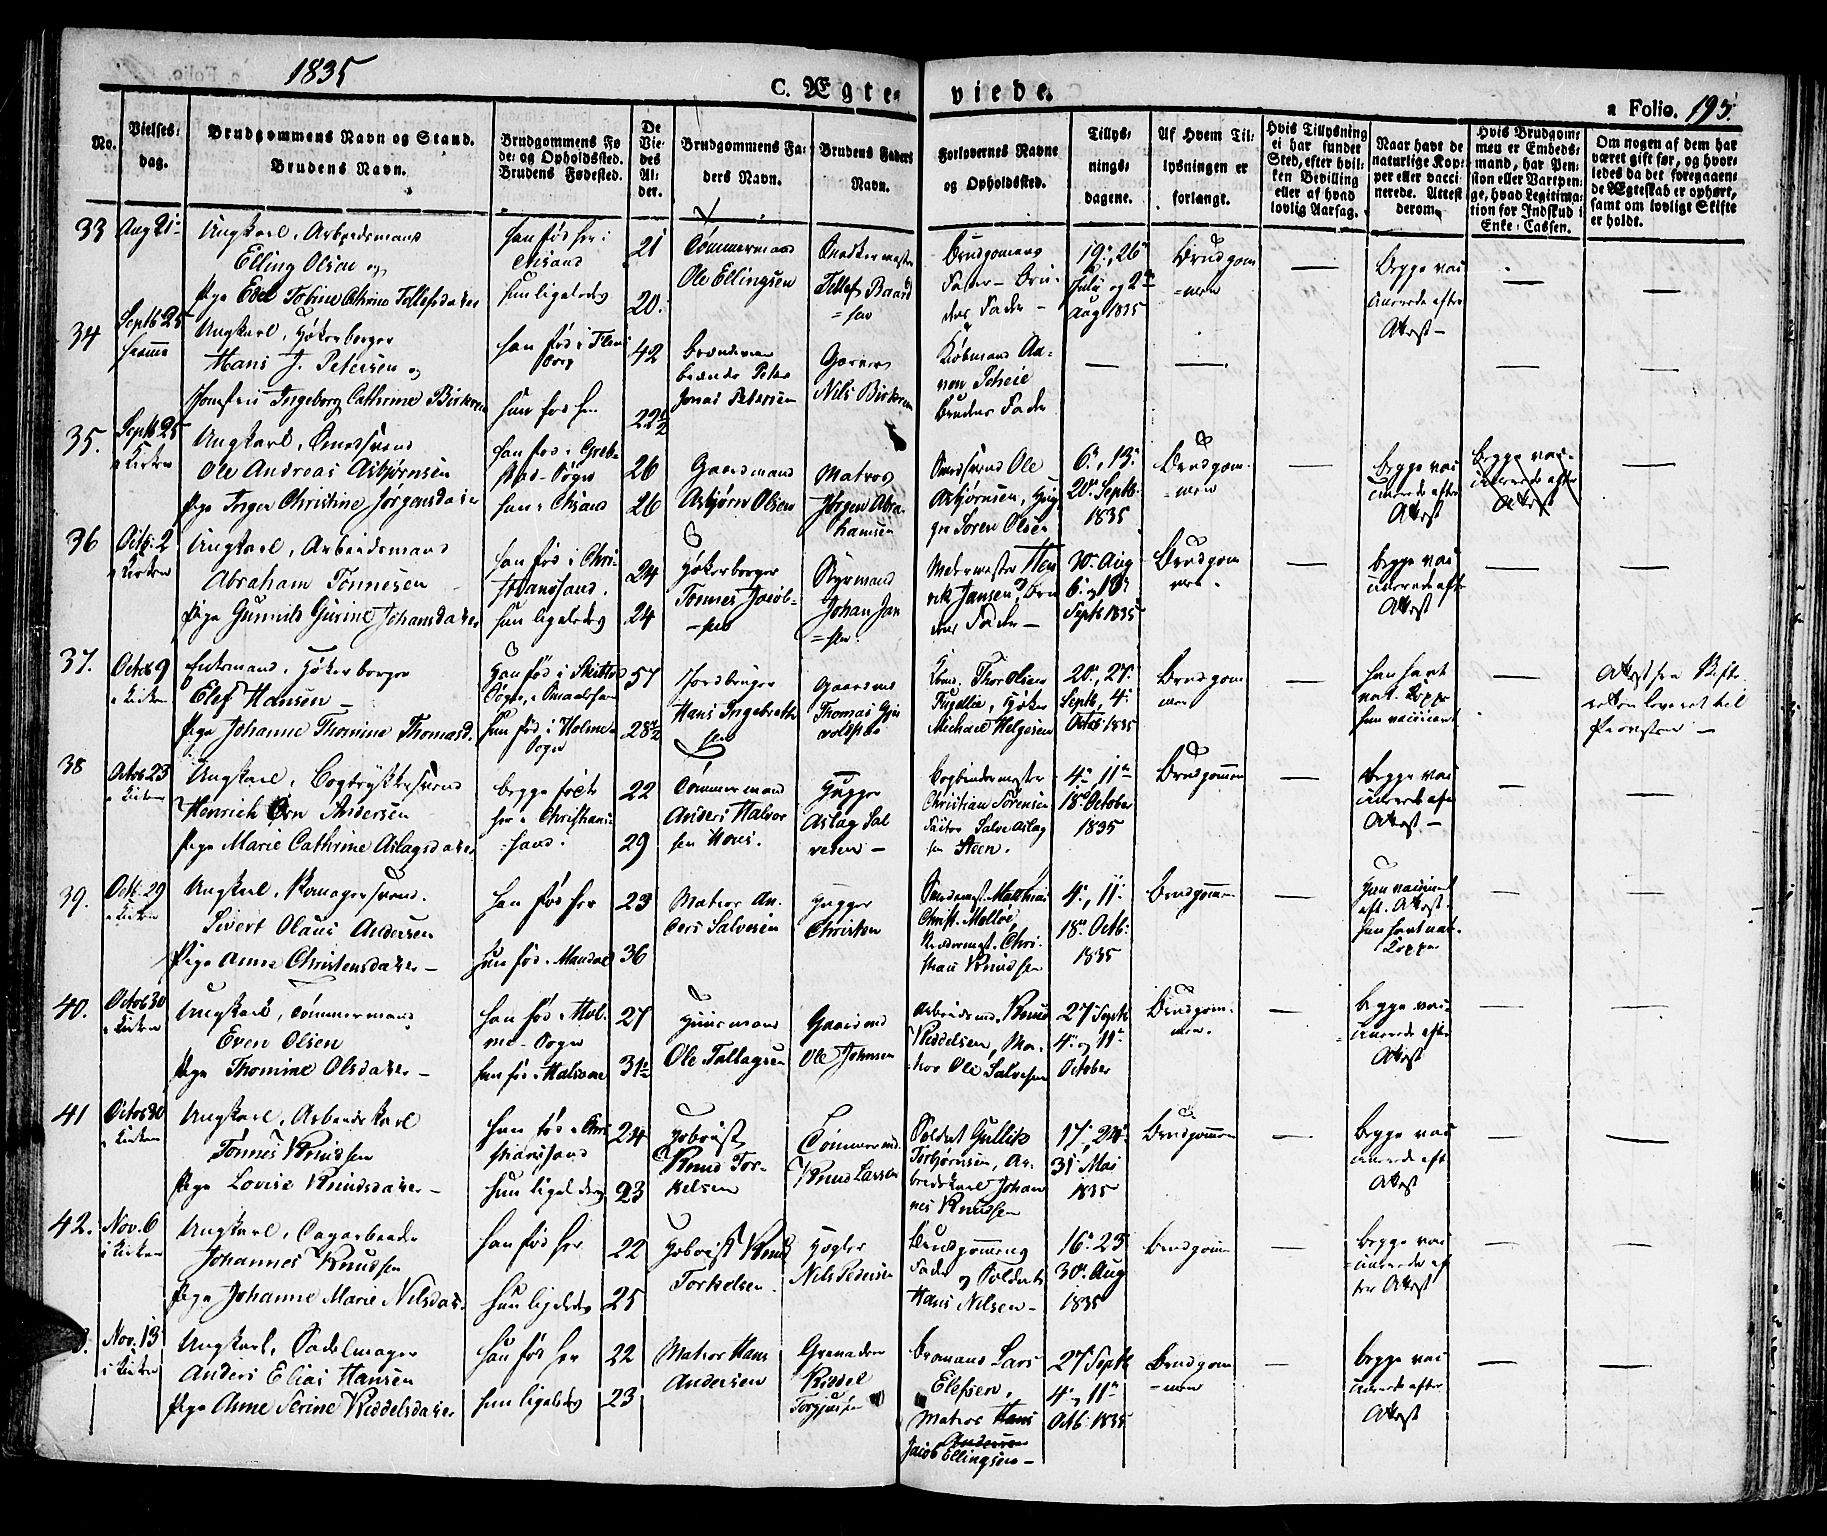 1835
C. Ægteviede.
a Folio. 195.
No.
Vielses-dag.
Brudgommens Navn og Stand. Brudens Navn.
Brudgommens Føde- og Opholdssted. Brudens Fødested.
De Viedes Alder.
Brudgommens Faders Navn.
Brudens Faders Navn.
Forlovernes Navne og Opholdsted.
Tillysningsdagene.
Af Hvem Tillysningen er forlangt.
Hvis Tillysning ei har funder Sted, efter hvilken Bevilling eller af hvad lovlig Aarsag.
Naar havt de naturlige Kopper eller vaccinerede. Attest derom.
Hvis Brudgommen er Embedsmand, har Pension eller Vartpenge, hvad Legitimation for Indskud i Enke-Cassen.
Om nogen af dem har været gift før, og hvorledes da det foregaaende Ægteskab er ophørt, samt om lovligt Skifte er holdt.
33 Aug 21
Ungkarl, Arbeidsmand
Elling Olsen og
Pige Edel Tobine Cathrine Tellefsdatter
han fød her i Chsand
hun ligeledes
21
20
Tømmermand
Ole Ellingsen
Tellef Baard=sen
Brudgomens Fader - Brudens Fader -
19, 26 Juli og 2 Aug 1835
Brudgommen
Begge vaccinerede efter Attest -
34 Septb 25 hjemme
Ungkarl, Høkerborger
Hans J. Petersen og
Jomfru Ingeborg Cathrine Birkeren
han fød i
hun fød her
42
22 1/2
Peter Jonas Petersen
Nils Birkeren
Kiøbmand Aanon Scheie
Brudens Fader
35. Septb 25 i Kirken
Ungkarl,
Ole Andreas Asbjørnsen
Pige Inger Christine Jørgensdatter
Sogn
hun i Chsand
26
26
Gaardmand
Asbjørn Olsen
Matros
Jørgen Abrahamsen
Ole Asbjørnsen,
Søren Olsen
6, 13, 20 Septb. 1835
Brudgommen
Begge vaccinerede efter Attest
Begge vaccinerede efter Attest
36 Octb. 2 i Kirken
Ungkarl, Arbeidsmand
Abraham Tønnesen
Pige Gunnild Gurine Johansdatter
han fød i Christiansand.
hun ligeledes
24
24
Høkerborger
Tønnes Jacob=sen
Styrmand
Johan Jan=sen
Henrik Jansen, Brudens Fader -
30 Aug 6 og 13 Septb 1835
Brudgommen.
Begge vaccinerede efter Attest
37. Octob 9 i Kirken
Enkemand, Høkerborger
Elef Hansen -
Pige Johanne Thomine Thomasd.
Hun fød i Holme Sogn
57
28 1/2
Hans Ingebretsen
Gaardmd
Thomas
Thor Olsen
Høker Michael Helgesen
20, 27 Septb, 4 Octob 1835
Brudgommen
han havt nat. Kopper
hun vaccineret
Attest fra Skifteretten leveret til Provsten -
38 Octob 23 i Kirken
Ungkarl, Bogtrykkersvend
Henrich Ørn Andersen
Pige Marie Cathrine Aslagsdatter
begge fødte her i Christiansand.
22
29
Tømmermand
Anders Halvorsen
Hugger
Aslag Salvesen -
Bogbindermester
Christian Sørensen
Salve Aslagsen Steen.
4, 11 18 October 1835
Brudgommen
Begge vaccinerede eft Attest -
39. Octb. 29 i Kirken
Ungkarl, svend.
Sivert Olaus Andersen
Pige Anne Christensdatter -
han fød her
hun fød i Mandal
23
36
Matros Anders Salvesen
Hugger
Christen
Matthias Christ. Molløe,
Christian Knudsen
4, 11 18 Octb. 1835
Brudgommen
Hun vaccineret eft. Attest.
han havt nat. Kopper
40. Octob 30 i Kirken
Ungkarl, Tømmermand
Even Olsen
Pige Thomine Olsdatter -
han fød i Holme-Sogn
hun fød i
27
31 1/2
Huusmand
Ole Tallagsen
Gaardmd
Ole Johnsen
Arbeidsmd. Knud Kiddelsen, Matros Ole Salvesen
27 Septb 4 og 11 October
Brudgommen.
Begge vaccinerede efter Attest
41 Octob 30 i Kirken
Ungkarl, Arbeidskarl
Tønnes Knudsen
Pige Lovise Knudsdatter -
han fød i Christiansand
hun ligeledes
24
23
Hoboist
Knud Torkelsen
Tømmermd.
Knud Larsen
Soldat Gullik Torbjørnsen, Arbeidskarl Johannes Knudsen
17, 24 31 Mai 1835
Brudgommen
Begge vaccinerede eft Attest
42. Nov. 6 i Kirken
Ungkarl, Dagarbeider
Johannes Knudsen
Pige Johanne Marie Nilsdatter
han fød her
hun ligeledes
22
25
Hoboist Knud Torkelsen
Nils Pedersen
Brudgommens Fader og Soldat Hans Nilsen -
16. 23 30 Aug 1835
Brudgommen
Begge vaccinerede efter Attest
Nov. 13 i Kirken
Ungkarl, Sadelmager
Anders Elias Hansen
Pige Anne Serine Kiddelsdatter
han fød her
hun ligeledes
22
23
Matros Hans Andersen
Grenader
Kiddel
Lars Elefsen,
Matros Hans Andersen
Jacob Ellingsen -
27 Septb 4, 11 Octb. 1835
Brudgommen
Begge vaccinerede efter Attest